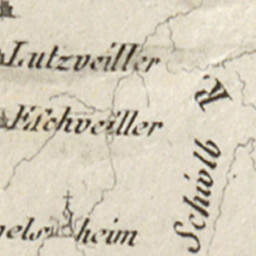 Lutzveiller
Eschveiller
Schwlb R.
pels heim